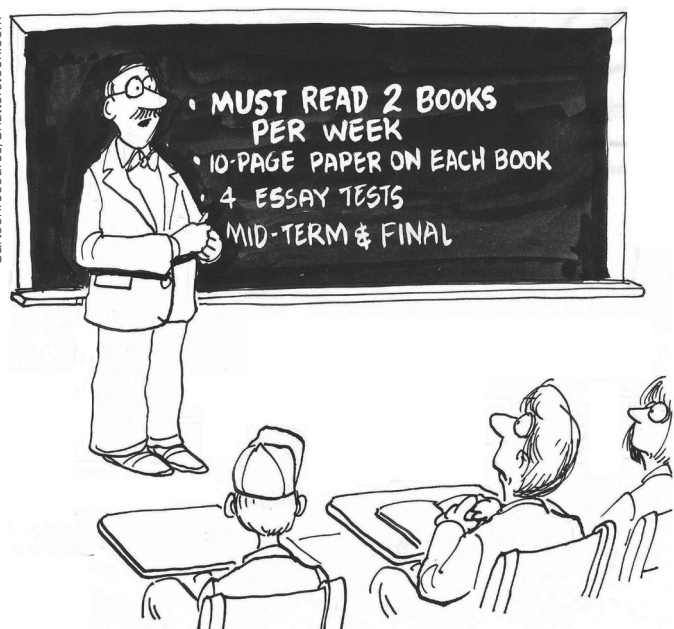 • MUST READ 2 BOOKS
PER WEEK
• 10-PAGE PAPER ON EACH BOOK
• 4 ESSAY TESTS
MID-TERM & FINAL